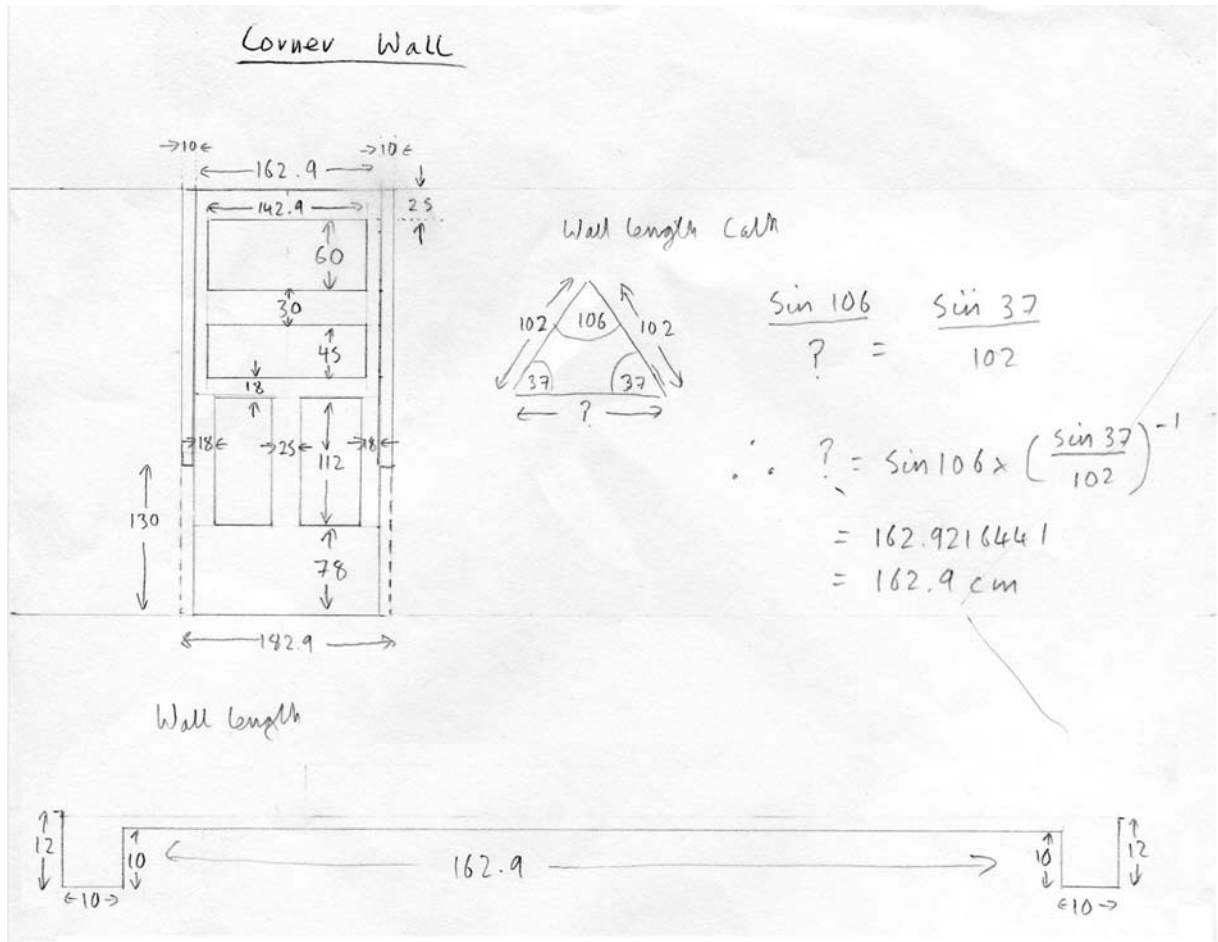 Corner Wall
→10← →10←
162.9
142.9
25
60
30
45
18
18 25 18
112
130
78
182.9
Wall length Calc
102 106 102
37 37
?
Sin 106 / ? = Sin 37 / 102
∴ ? = Sin 106 × (Sin 37 / 102)⁻¹
= 162.9216441
= 162.9 cm
Wall length
12 10 162.9 10 12
←10→ ←10→